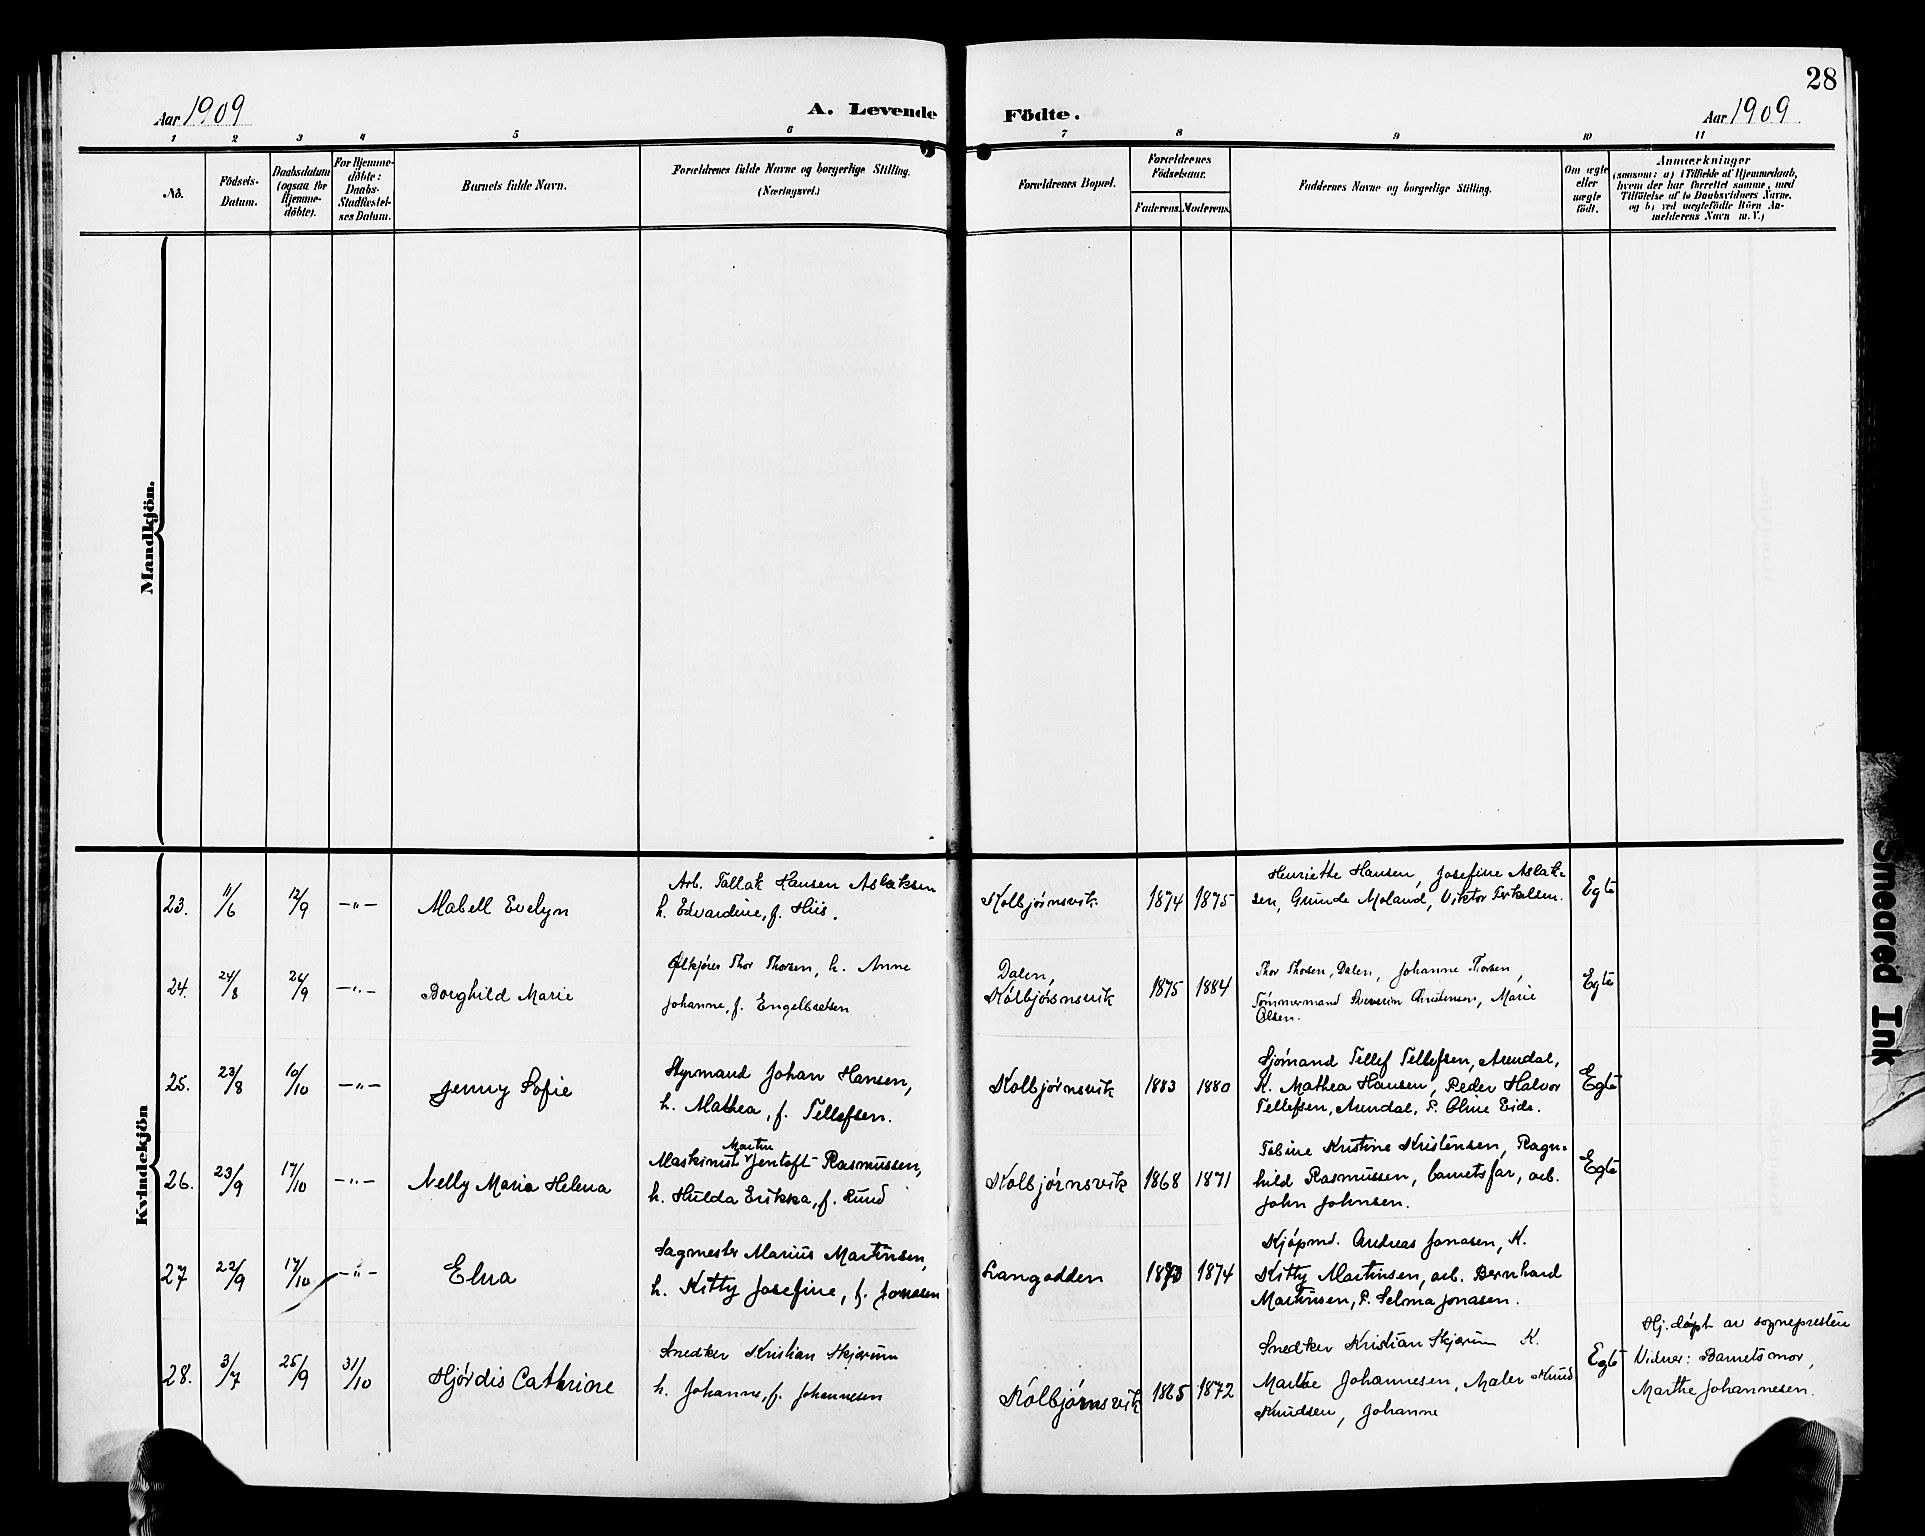 28
Aar 1909
A. Levende Födte.
Aar 1909
1 2 3 4 5 6 7 8 9 10 11
No.
Födsels-
Datum.
Daabsdatum
(ogsaa for
Hjemme-
döbte).
For Hjemme-
döbte:
Daabs-
Stadfæstel-
ses Datum.
Barnets fulde Navn.
Forældrenes fulde Navne og borgerlige Stilling.
(Næringsvei.)
Forældrenes Bopæl.
Forældrenes
Födselsaar.
Faderens. Moderens.
Faddernes Navne og borgerlige Stilling.
Om ægte
eller
uægte
födt.
Anmærkninger
(saasom: a) i Tilfælde af Hjemmedaab,
hvem der har forrettet samme, med
Tilföielse af to Daabsvidners Navne.
og b) ved uægtefödte Börn An-
melderens Navn m. V.)
Mandkjön.
Kvindekjön
23. 11/6 12/9 -"- Mabell Evelyn
Arb. Tallak Hansen Aslaksen
h. Edvardine, f. Hiis.
Kolbjørnsvik 1874 1875
Henriette Hansen, Josefine Aslak-
sen, Gunde Moland, Viktor Terkelsen.
Egte
24. 24/8 26/9 -"- Borghild Marie
Ølkjører Thor Thorsen, h. Anne
Johanne, f. Engelbretsen
Dalen,
Kolbjørnsvik 1875 1884
Thor Thorsen, Dalen, Johanne Thorsen,
Tømmermand Severin Christensen, Marie
Olsen.
Egte
25. 23/8 10/10 -"- Jenny Sofie
Styrmand Johan Hansen,
h. Mathea, f. Tellefsen.
Kolbjørnsvik 1883 1880
Sjømand Tellef Tellefsen, Arendal,
K. Mathea Hansen, Peder Halvor
Tellefsen, Arendal, P. Oline Eide.
Egte
26. 23/9 17/10 -"- Nelly Maria Helena
Martin
Maskinist Jentoft Rasmussen,
h. Hulda Erikka, f. Lund
Kolbjørnsvik 1868 1871
Tobine Kristine Kristensen, Ragn-
hild Rasmussen, barnets far, arb.
John Johnsen.
Egte
27 22/9 17/10 -"- Elna
Sagmester Marius Martinsen,
h. Kitty Josefine, f. Jonasen
Langodden 1873 1874
Kjøpmd. Andreas Jonasen, K.
Kitty Martinsen, arb. Bernhard
Martinsen, P. Selma Jonasen.
28. 3/7 25/9 31/10 Hjørdis Cathrine
Snedker Kristian Skjærum
h. Johanne, f. Johannesen
Kolbjørnsvik 1865 1872
Snedker Kristian Skjærum K.
Marthe Johannesen, Maler Knud
Knudsen, Johanne
Egte
Hj. døpt av sognepresten
Vidner: Barnets mor,
Marthe Johannesen.
Smeared Ink